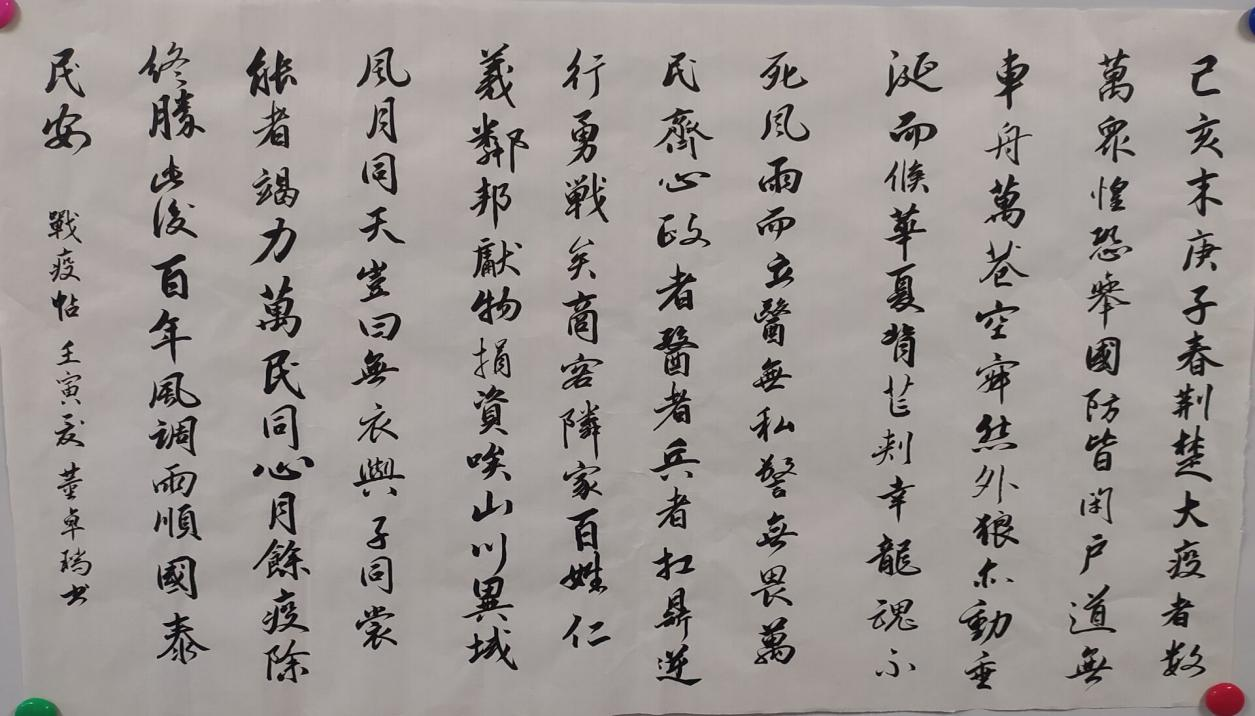 己亥末庚子春荆楚大疫者数
萬眾惶恐舉國防皆闭户道無
車舟萬巷空寂然外狼亦動垂
涎而候華夏背芒刺幸龍魂不
死風雨而立醫無私警無畏萬
民齊心政者醫者兵者扛鼎逆
行勇戰矣商客隣家百姓仁
義鄰邦獻物捐資唉山川異域
風月同天豈曰無衣與子同裳
能者竭力萬民同心月餘疫除
終勝此後百年風調雨順國泰
民安
戰疫帖 壬寅夏 董卓瑞书